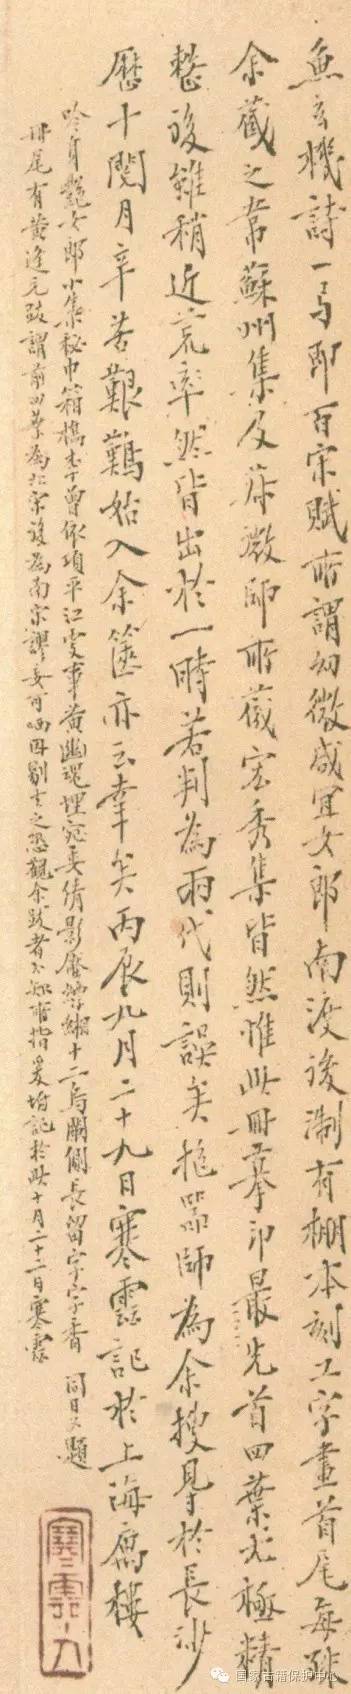 魚玄機詩一厶即百宋賦所謂幼微咸宜女郎南渡後制有棚本刻工字畫首尾每殊
余藏之韋蘇州集及茮微師所藏宏秀集皆然惟此冊摹印最先首四葉尤極精
整後雖稍近荒率然皆出於一時若判為兩代則誤矣抱器師為余搜尋於長沙
歷十閱月辛苦艱難始入余篋亦云幸矣丙辰九月二十九日寒雲記於上海寓樓
吟身艷女郎小集秘巾箱樵李曾依項平江更事黃幽魂埋宛委倩影壓縹緗十二烏闌側長留字字香 同日又題
冊尾有黃逢元跋謂前四葉為北宋後為南宋謬妄可哂因剔去之恐觀余跋者不知所指爰坿記於此十月二十二日寒雲
寒雲小印
國家古籍保護中心